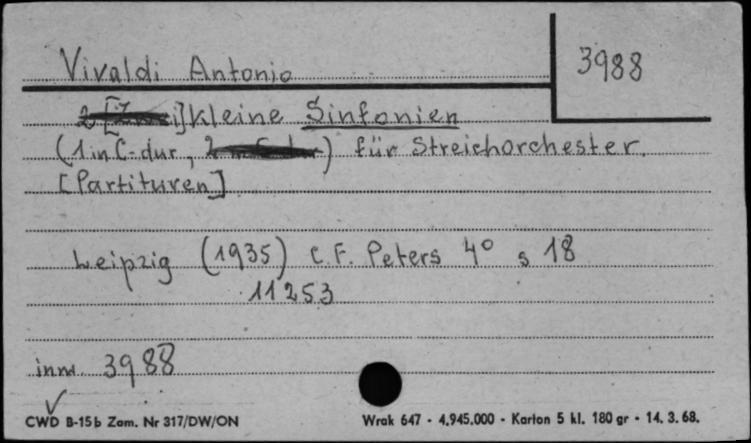 Vivaldi Antonio
3988
2 [ i] kleine Sinfonien
(1 in C-dur, 2 ) für Streichorchester.
[Partituren]
Leipzig (1935) C.F. Peters 4° s 18
11253
inw. 3988
CWD B-15b Zam. Nr 317/DW/ON
Wrak 647 - 4.945.000 - Karton 5 kl. 180 gr - 14.3.68.